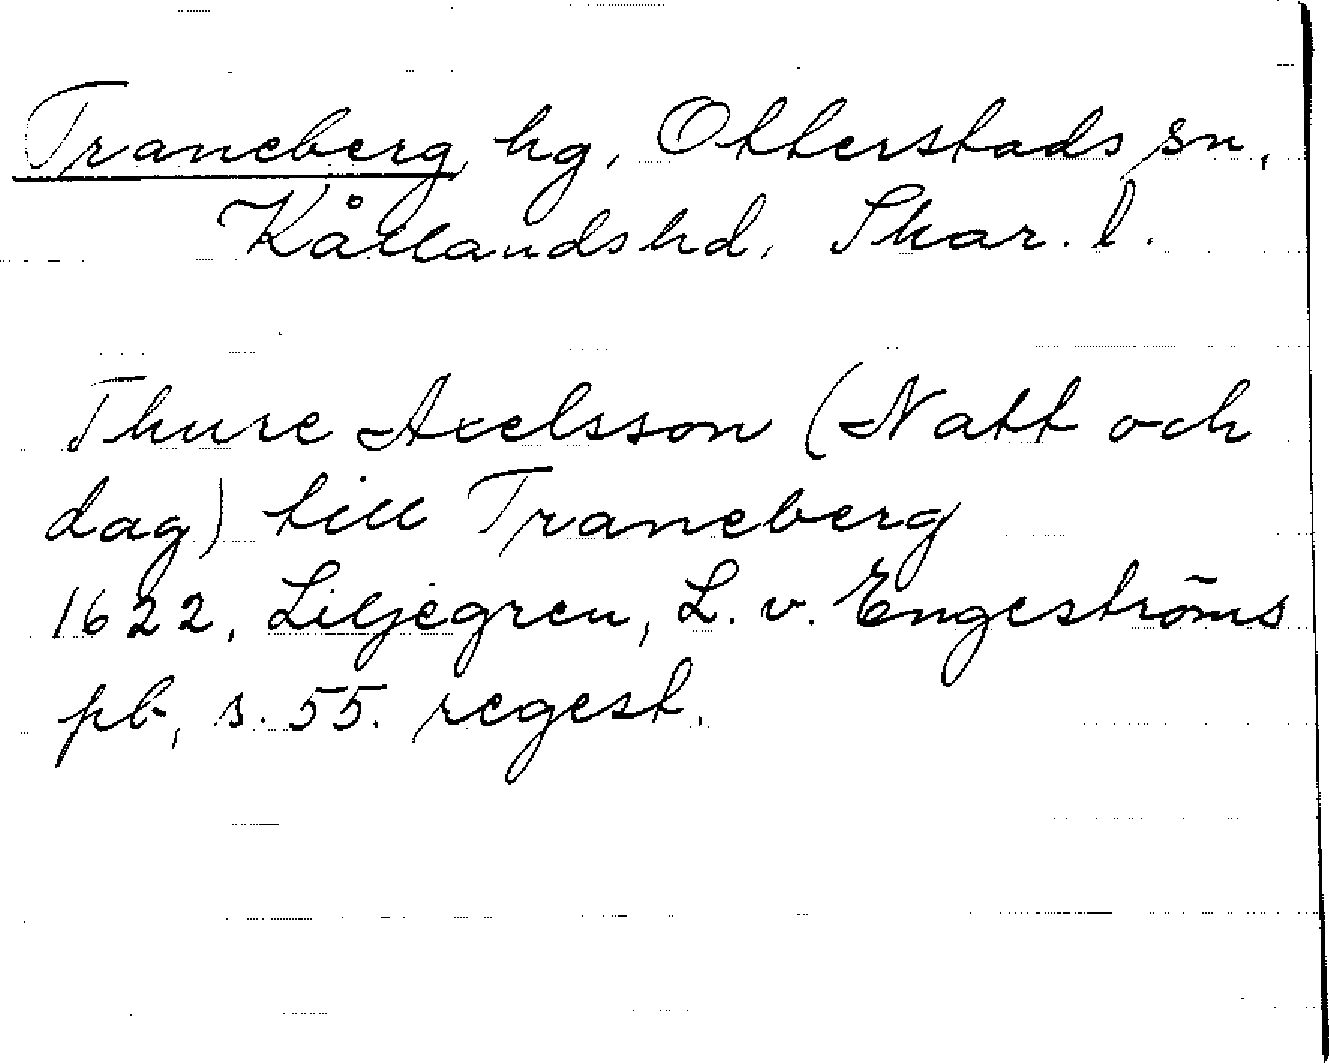 Traneberg, hg, Otterstads sn,
Kållands hd, Skar. l.
Thure Axelsson (Natt och
dag) till Traneberg
1622, Liljegren, L. v. Engeströms
pb, s. 55. regest.